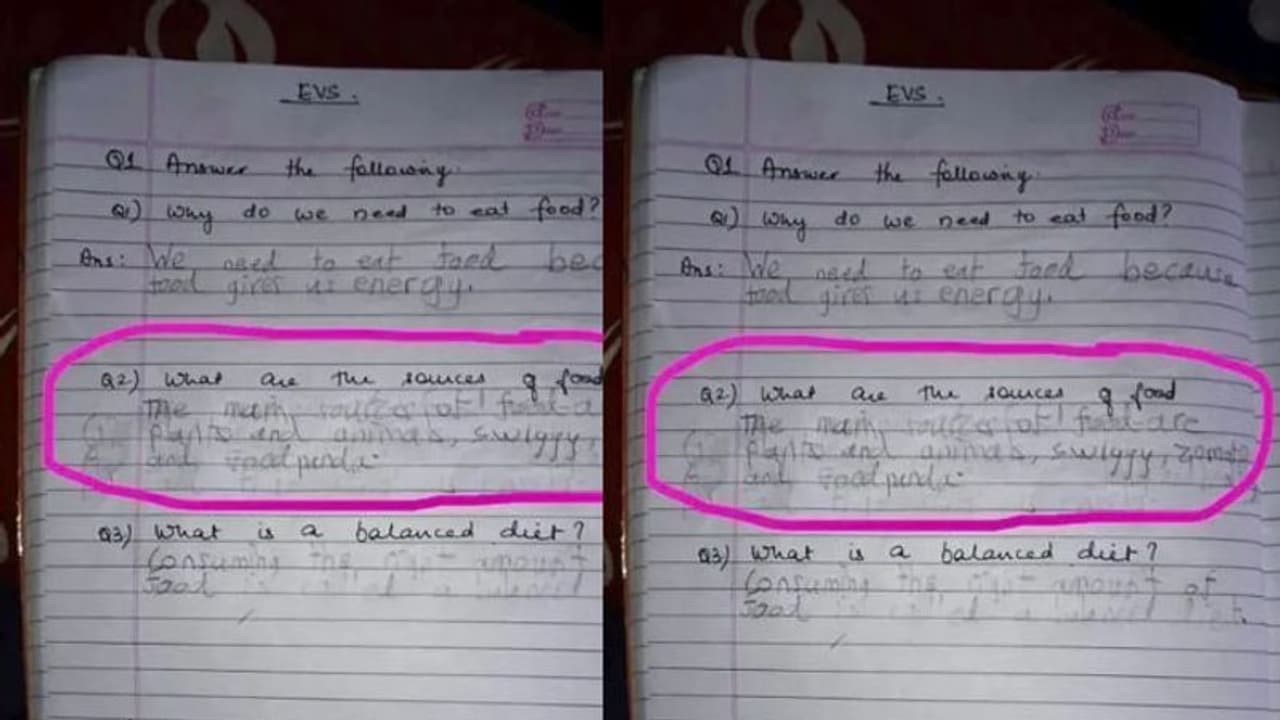 EVS.
Q1 Answer the following.
Q1) Why do we need to eat food?
Ans: We need to eat food bec
food gives us energy.
Q2) What are the sources of food
The main sources of food a
plants and animals, swiggy,
and Foodpanda.
Q3) What is a balanced diet?
Consuming the right amount
food is called a balanced
EVS.
Q1 Answer the following.
Q1) Why do we need to eat food?
Ans: We need to eat food because
food gives us energy.
Q2) What are the sources of food
The main sources of food are
plants and animals, swiggy, zomato
and Foodpanda.
Q3) What is a balanced diet?
Consuming the right amount of
food is called a balanced diet.